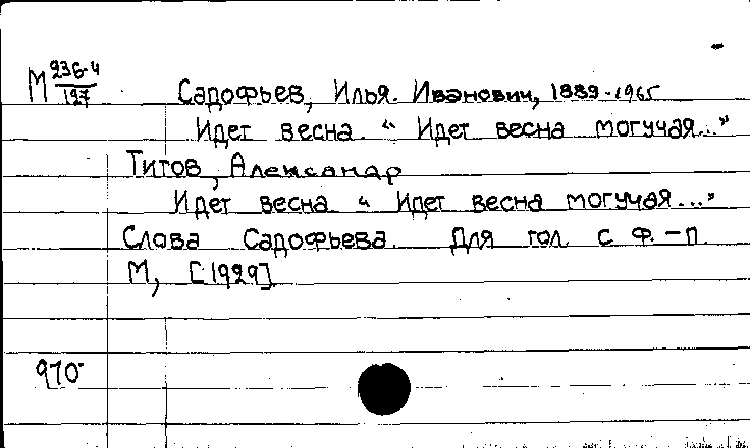 М 236-4/127
Садофьев, Илья. Иванович, 1889-1965
Идет весна. "Идет весна могучая..."
Титов, Александр
Идет весна "Идет весна могучая..."
Слова Садофьева. Для гол. с ф.-п.
М, [1929]
970-